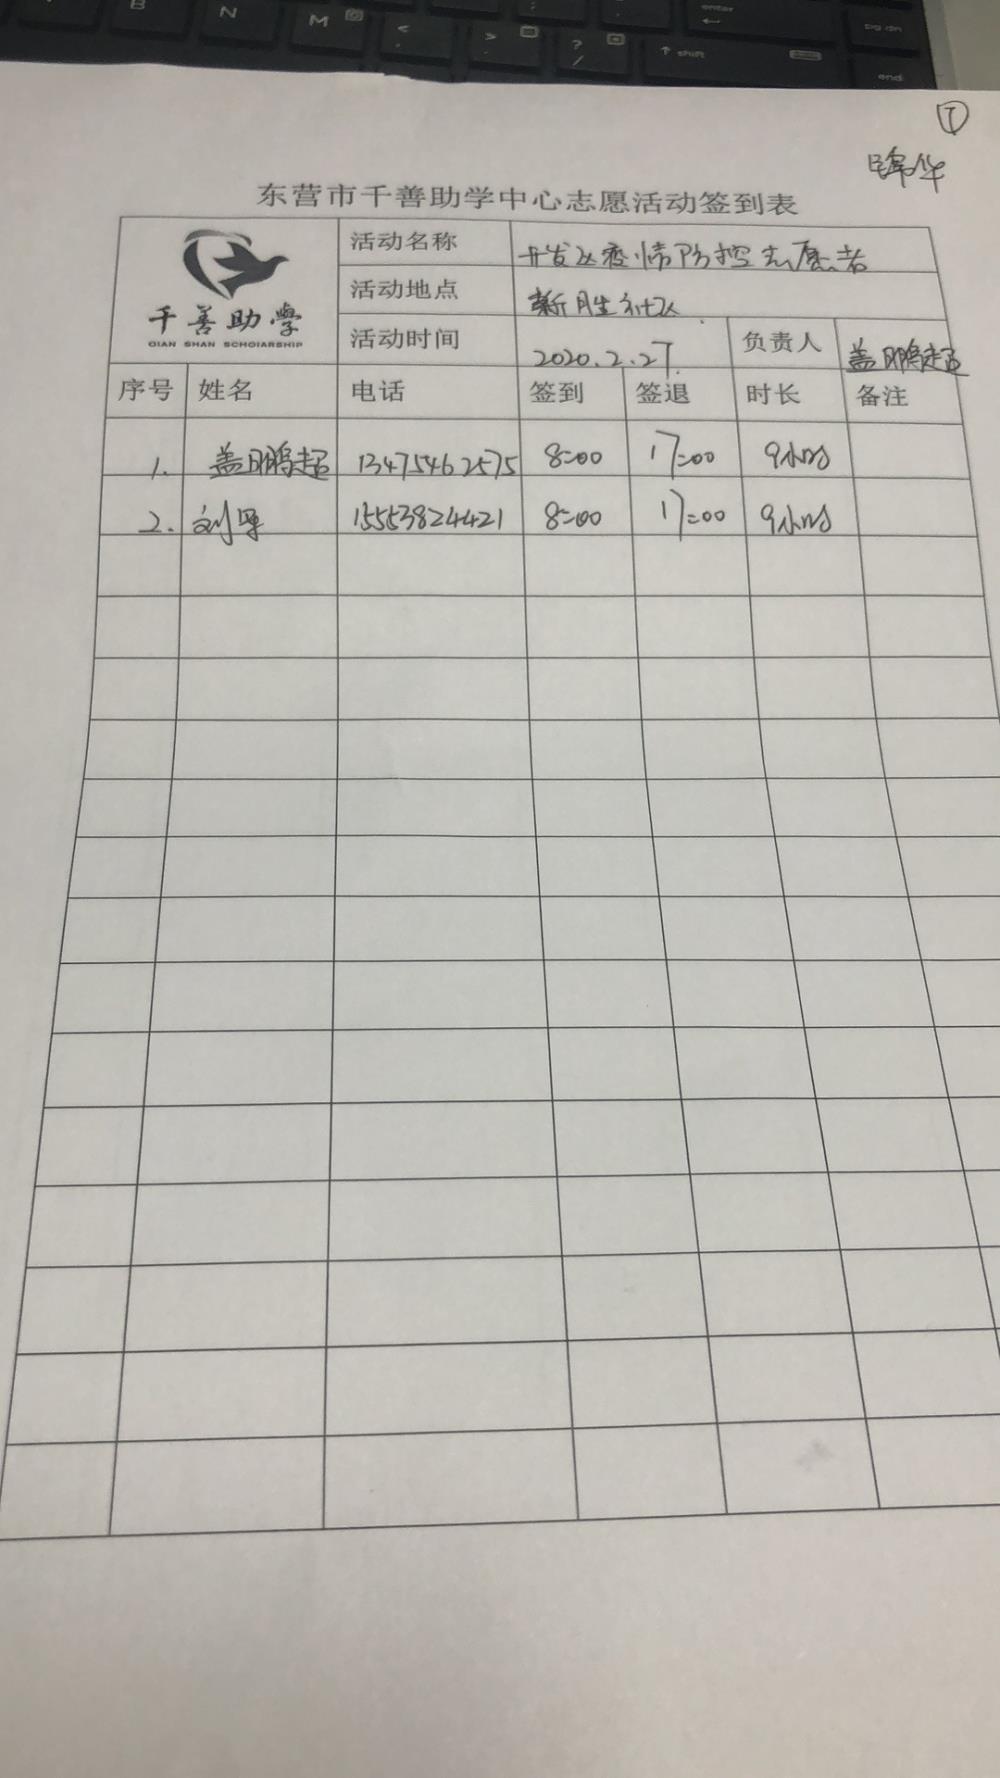 B N M < , > . ? / ; enter ↑ shift pg dn end
①
东营市千善助学中心志愿活动签到表
千善助學
QIAN SHAN SCHOIARSHIP
活动名称 开发区疫情防控志愿者
活动地点 新胜社区
活动时间 2020.2.27 负责人 盖鹏超
序号 姓名 电话 签到 签退 时长 备注
1. 盖鹏超 13475462575 8:00 17:00 9小时
2. 刘军 15553824421 8:00 17:00 9小时